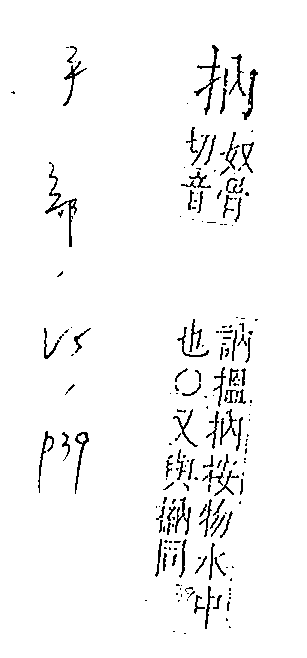 抐
奴骨
切音
訥搵抐按物水中
也○又與㨥同
手部，V5，P39